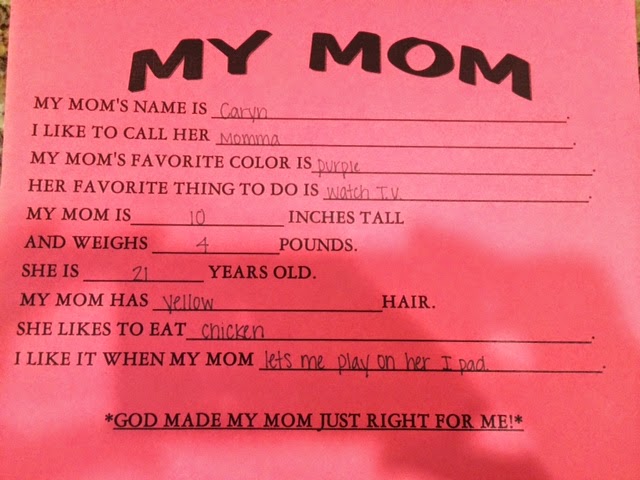 MY MOM
MY MOM'S NAME IS Caryn.
I LIKE TO CALL HER Momma.
MY MOM'S FAVORITE COLOR IS purple.
HER FAVORITE THING TO DO IS watch T.V..
MY MOM IS 10 INCHES TALL
AND WEIGHS 4 POUNDS.
SHE IS 21 YEARS OLD.
MY MOM HAS yellow HAIR.
SHE LIKES TO EAT chicken.
I LIKE IT WHEN MY MOM lets me play on her I pad.
*GOD MADE MY MOM JUST RIGHT FOR ME!*